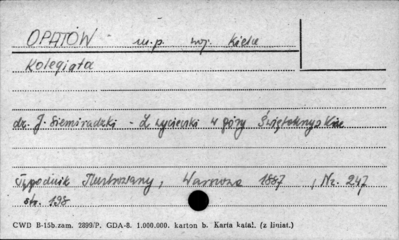 OPATÓW - m.p. woj. Kielce
Kolegiata
dr. J. Siemiradzki - Z wycieczki w góry Świętokrzyskie
Tygodnik Illustrowany, Warszawa 1887, Nr. 247
str. 198
CWD B-15b. zam. 2899/P. GDA-8. 1.000.000. karton b. Karta katal. (z liniat.)